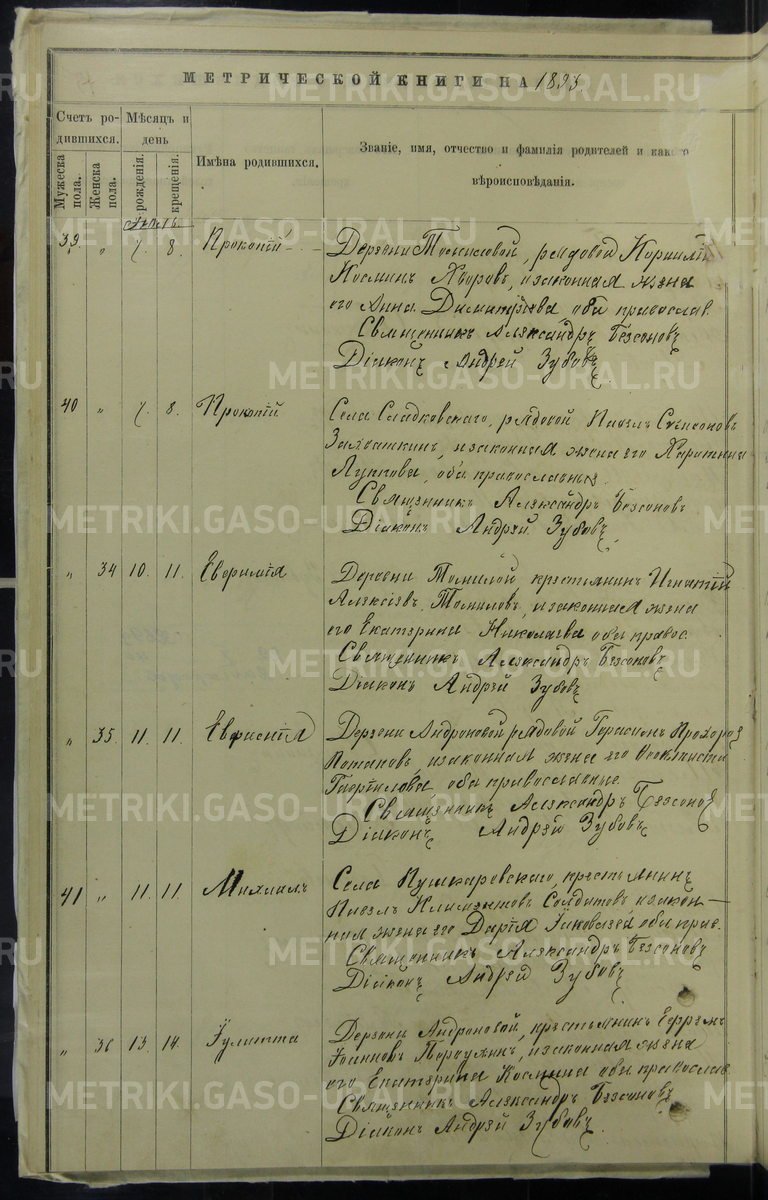 МЕТРИЧЕСКОЙ КНИГИ НА 1893.
Счетъ ро-
дившихся.
Мѣсяцъ и
день
Имѣна родившихся.
Званіе, имя, отчество и фамилія родителей и какого
вѣроисповѣданія.
Мужеска пола.
Женска пола.
рожденія.
крещенія.
39 " 7. 8. Прокопій
рядовой Корнилій
Косминъ и законная жена
его Анна Димитріева, оба православ.
Священникъ Александръ Безсоновъ
Діаконъ Андрей Зубовъ
40 " 7. 8. Прокопій
Села Сладковскаго, рядовой Павелъ
и законная жена его
оба православные.
Священникъ Александръ Безсоновъ
Діаконъ Андрей Зубовъ
" 34 10. 11. Евфимія
Деревни Томиловой крестьянинъ Игнатій
Алексіевъ Томиловъ, и законная жена
его Екатерина Николаева оба правос.
Священникъ Александръ Безсоновъ
Діаконъ Андрей Зубовъ
" 35. 11. 11.
Деревни Андроновой рядовой Герасимъ
Потаповъ, и законная жена его
Гавріилова, оба православные
Священникъ Александръ Безсоновъ
Діаконъ Андрей Зубовъ
41 " 11. 11. Михаилъ
Села Пушкаревскаго, крестьянинъ
Павелъ Климентовъ Солдатовъ и закон-
ная жена его Дарія оба прав.
Священникъ Александръ Безсоновъ
Діаконъ Андрей Зубовъ
" 36 13. 14. Іулитта
Деревни Андроновой, крестьянинъ Ефремъ
Іоанновъ и законная жена
его Екатерина Космина оба православ.
Священникъ Александръ Безсоновъ
Діаконъ Андрей Зубовъ.
METRIKI.GASO-URAL.RU